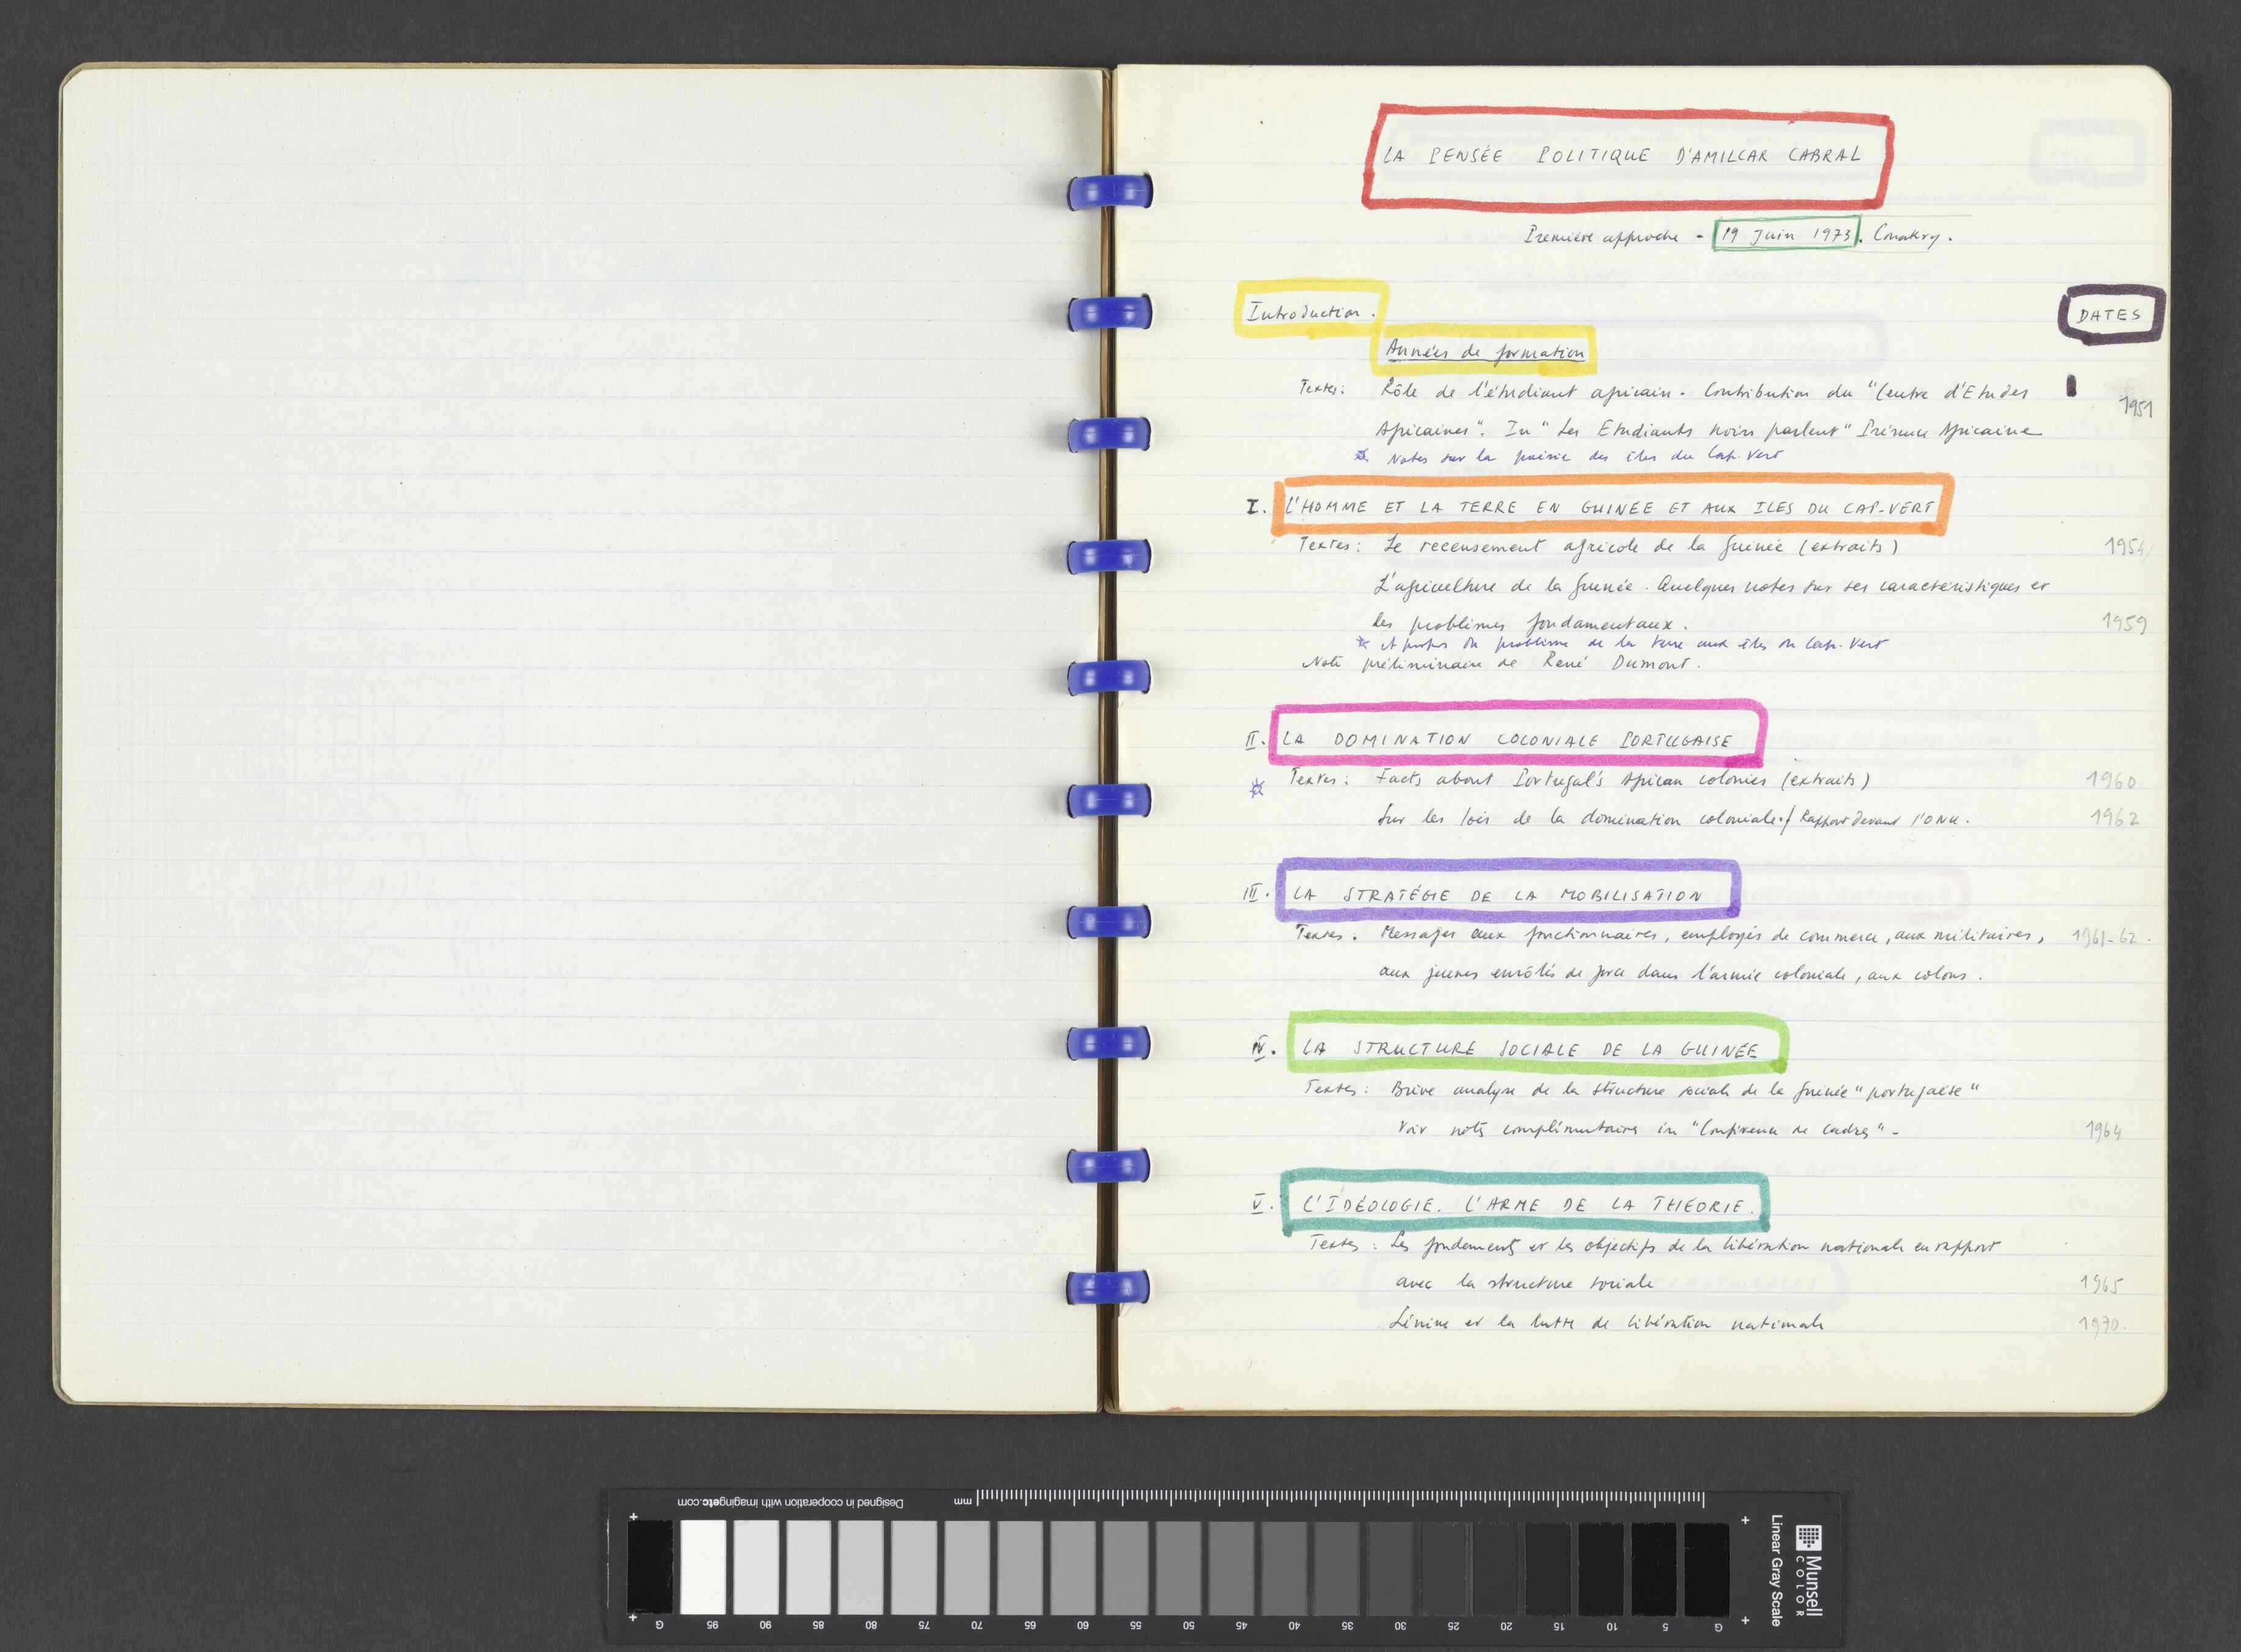 LA PENSÉE POLITIQUE D'AMILCAR CABRAL
Première approche - 19 Juin 1973. Conakry.
Introduction.
DATES
Années de formation
Textes: Rôle de l'étudiant africain. Contribution du "Centre d'Etudes
Africaines". In "Les Etudiants noirs parlent" Présence Africaine 1951
* Notes sur la poésie des îles du Cap-Vert
I. L'HOMME ET LA TERRE EN GUINÉE ET AUX ILES DU CAP-VERT
Textes: Le recensement agricole de la Guinée (extraits) 1954
L'agriculture de la Guinée. Quelques notes sur ses caractéristiques et
les problèmes fondamentaux. 1959
* A propos du problème de la terre aux îles du Cap-Vert
Note préliminaire de René Dumont.
II. LA DOMINATION COLONIALE PORTUGAISE
* Textes: Facts about Portugal's African colonies (extraits) 1960
Sur les lois de la domination coloniale. / Rapport devant l'ONU. 1962
III. LA STRATÉGIE DE LA MOBILISATION
Textes. Messages aux fonctionnaires, employés de commerce, aux militaires, 1961-62.
aux jeunes enrôlés de force dans l'armée coloniale, aux colons.
IV. LA STRUCTURE SOCIALE DE LA GUINÉE
Textes: Brève analyse de la structure sociale de la Guinée "portugaise"
Voir notes complémentaires in "Conférence de cadres" - 1964
V. L'IDÉOLOGIE. L'ARME DE LA THÉORIE.
Textes: Les fondements et les objectifs de la libération nationale en rapport
avec la structure sociale 1965
Lénine et la lutte de libération nationale 1970.
Designed in cooperation with imagingetc.com
mm
G 95 90 85 80 75 70 65 60 55 50 45 40 35 30 25 20 15 10 5 G
Linear Gray Scale
Munsell
COLOR